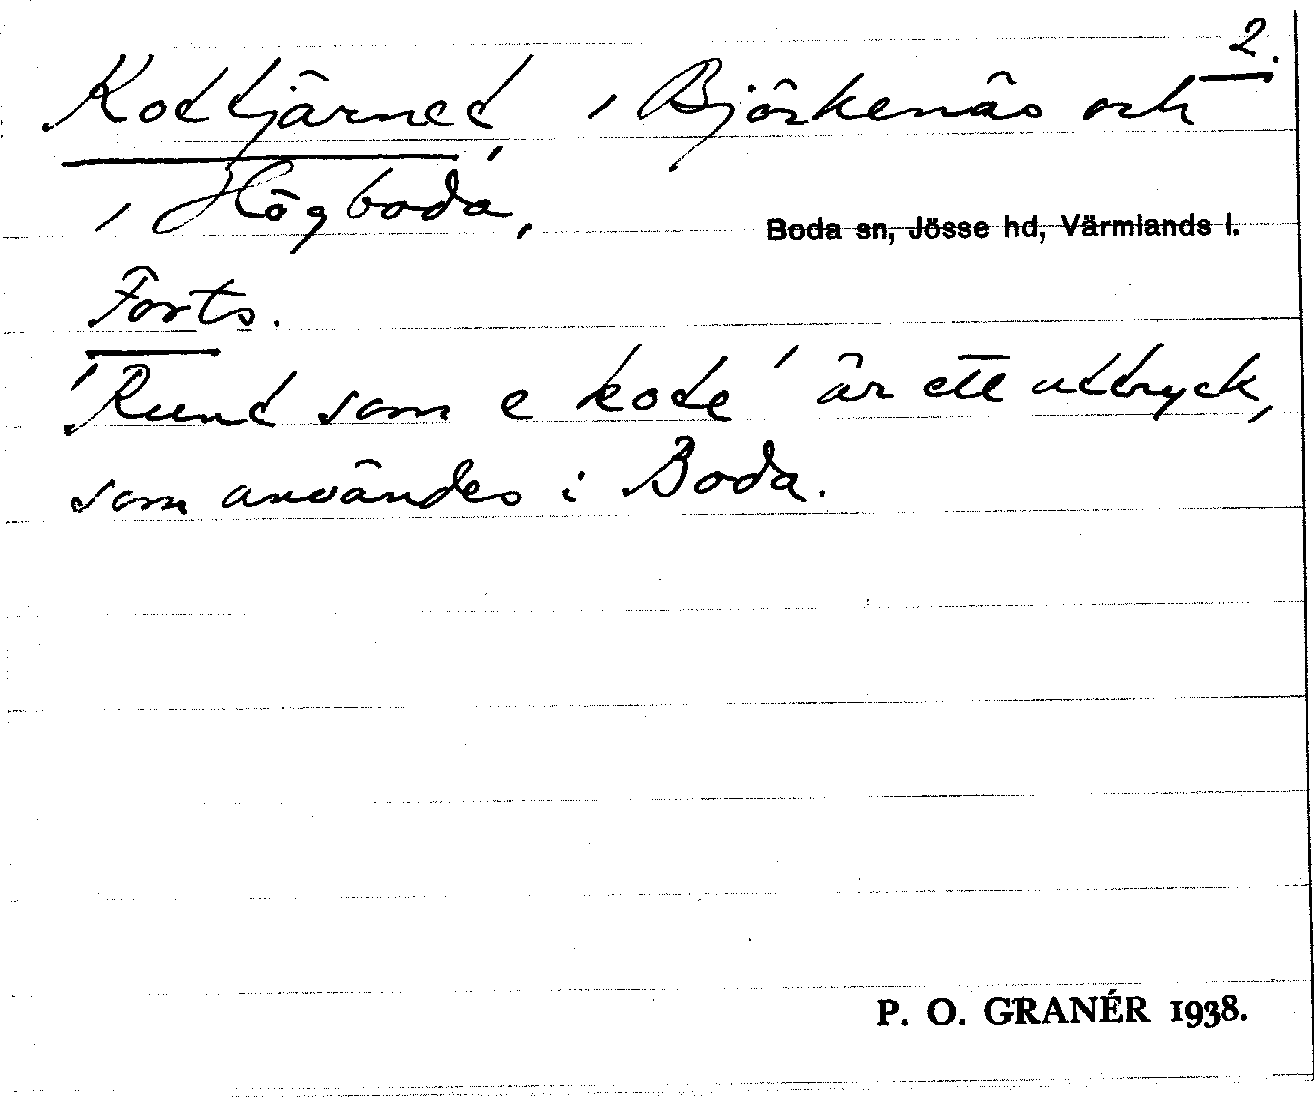 2.
Kottjärnet, i Björkenäs och
i Högboda,
Boda sn, Jösse hd, Värmlands l.
Forts.
'Runt som e kote' är ett uttryck,
som användes i Boda.
P. O. GRANÉR 1938.